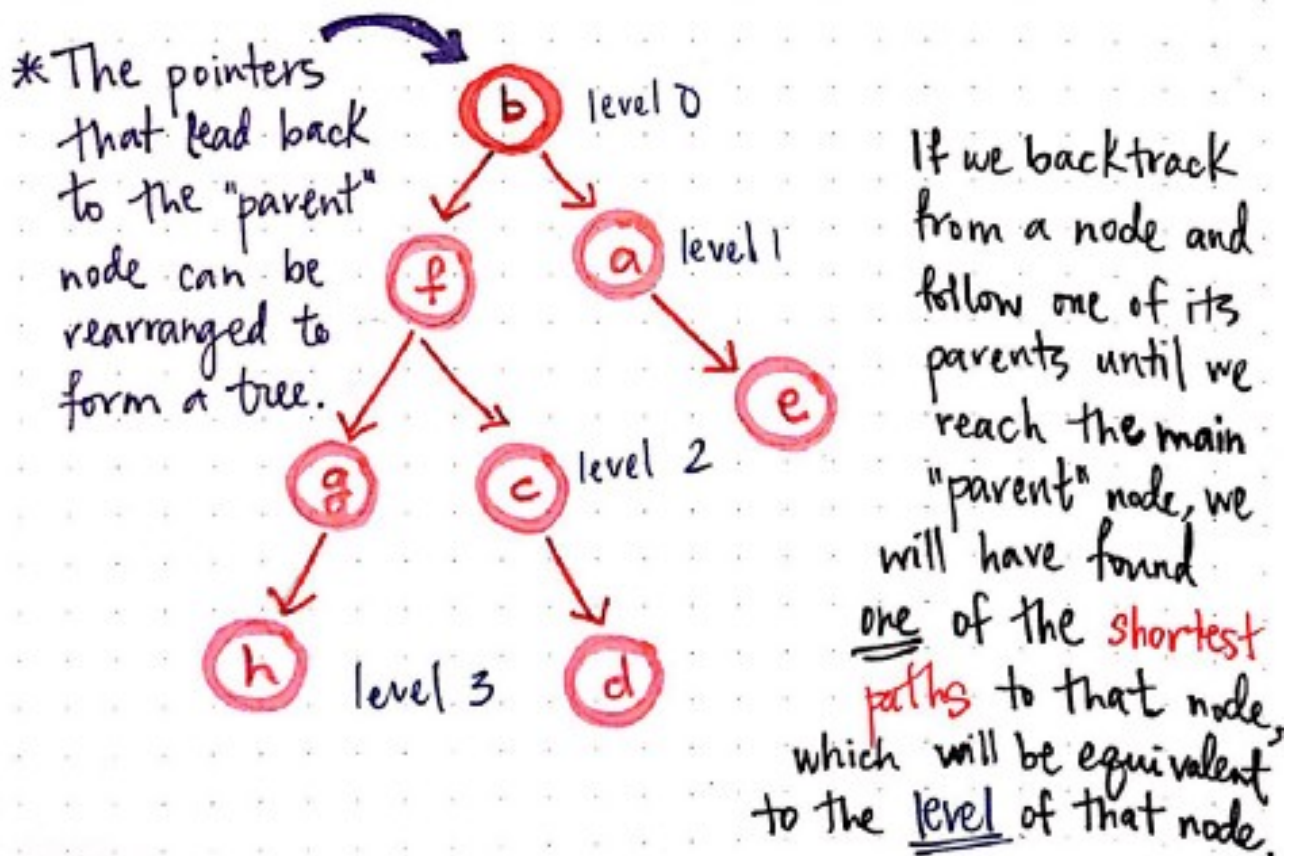 *The pointers
that lead back
to the "parent"
node can be
rearranged to
form a tree.
b level 0
f a level 1
e
g c level 2
h level 3 d
If we backtrack
from a node and
follow one of its
parents until we
reach the main
"parent" node, we
will have found
one of the shortest
paths to that node,
which will be equivalent
to the level of that node.